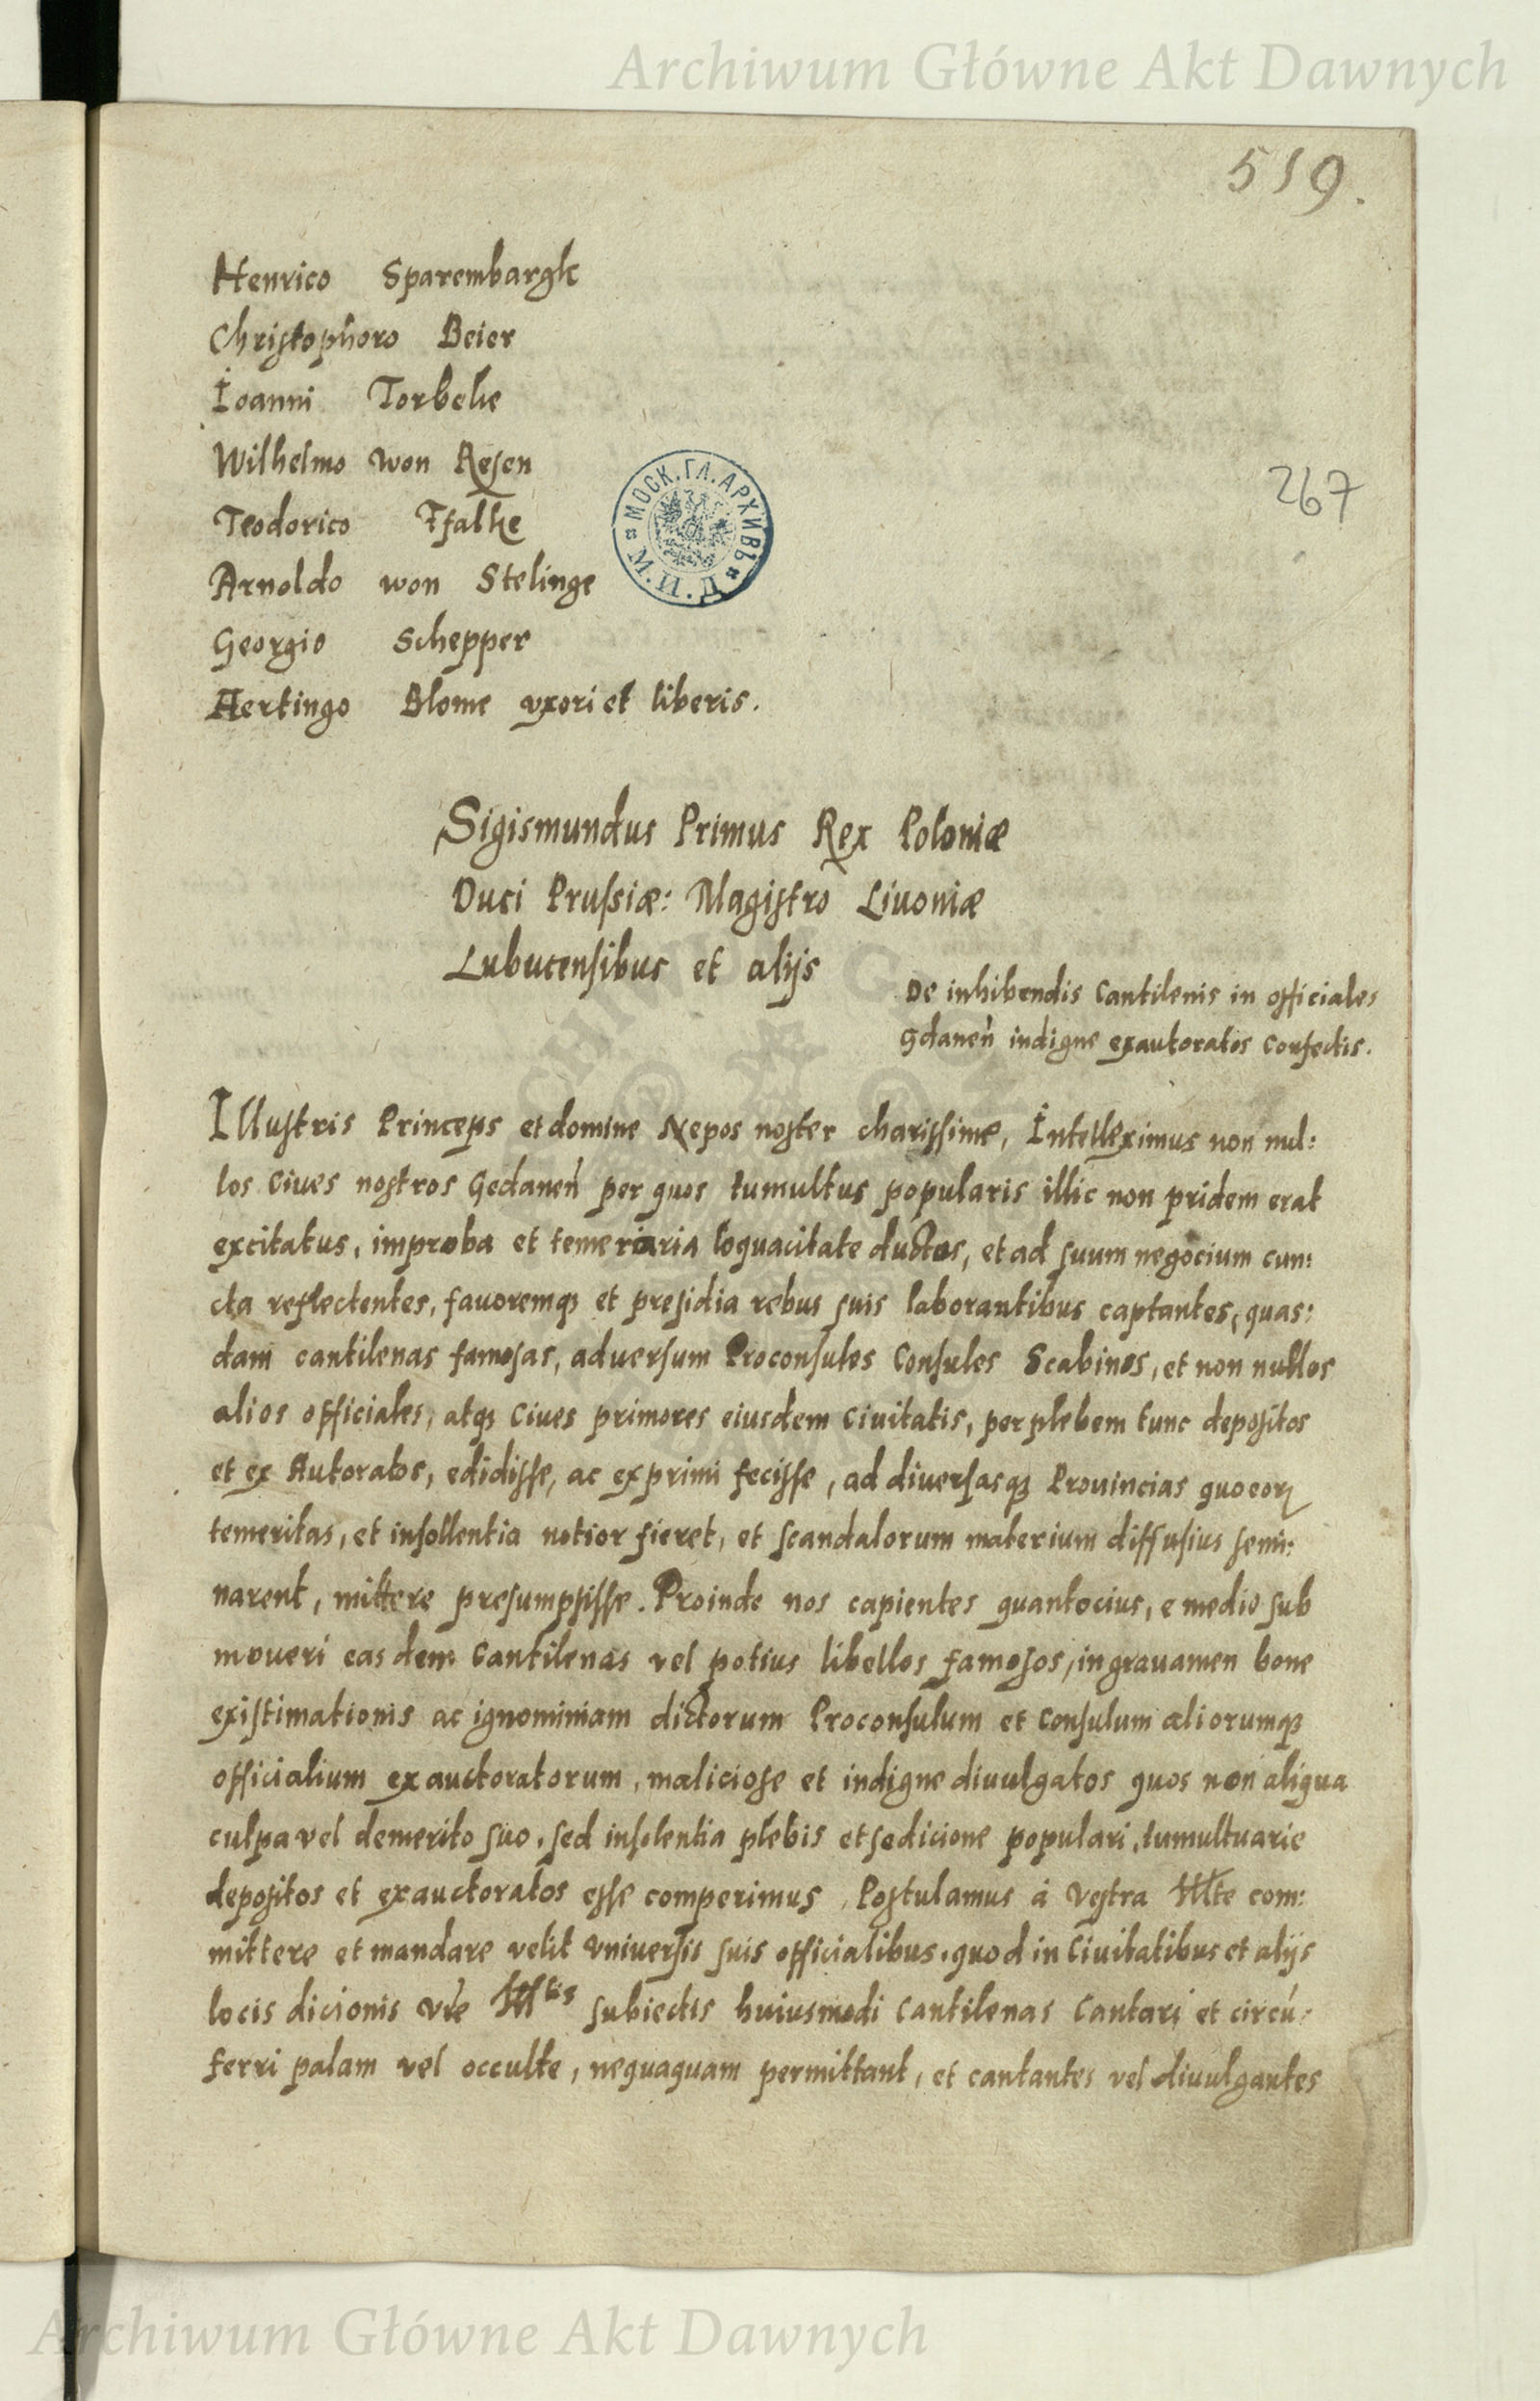 Archiwum Główne Akt Dawnych
519.
Henrico Sparembargk
Christophoro Beier
Ioanni Torbeke
267
Wilhelmo won Resen
МОСК.ГЛ.АРХИВЪ
Teodorico Ffalke
Arnoldo won Stelinge
Georgio Schepper
Hertingo Blome vxori et liberis.
Sigismundus Primus Rex Poloniæ
Duci Prussiæ: Magistro Liuoniæ
Lubucensibus et alijs
De inhibendis Cantilenis in officiales
Gdaneń indigne exautoratos confectis.
Illustris Princeps et domine Nepos noster charissime, Intelleximus non nul:
los Ciues nostros Gedaneń per quos tumultus popularis illic non pridem erat
excitatus, improba et temeriaria loquacitate ductos, et ad suum negocium cun:
cta reflectentes, fauoremqȝ et presidia rebus suis laborantibus captantes, quas:
dam cantilenas famosas, aduersum Proconsules Consules Scabinos, et non nullos
alios officiales, atqȝ Ciues primores eiusdem Ciuitatis, per plebem tunc depositos
et ex Autoratos, edidisse, ac exprimi fecisse, ad diuersasqȝ Prouincias quo eorꝝ
temeritas, et insollentia notior fieret, et scandalorum materium diffusius semi:
narent, mittere presumpsisse. Proinde nos capientes quantocius, e medio sub
moueri eas dem Cantilenas vel potius libellos famosos, in grauamen bone
existimationis ac ignominiam dictorum Proconsulum et Consulum aliorumqȝ
officialium exauctoratorum, maliciose et indigne diuulgatos quos non aliqua
culpa vel demerito suo, sed insolentia plebis et sedicione populari, tumultuarie
depositos et exauctoratos esse comperimus, Postulamus á Vestra Illte com:
mittere et mandare velit vniuersis suis officialibus, quod in Ciuitatibus et alijs
locis dicionis vre Illtis subiectis huiusmodi Cantilenas Cantari et circú:
ferri palam vel occulte, nequaquam permittant, et cantantes vel diuulgantes
Archiwum Główne Akt Dawnych